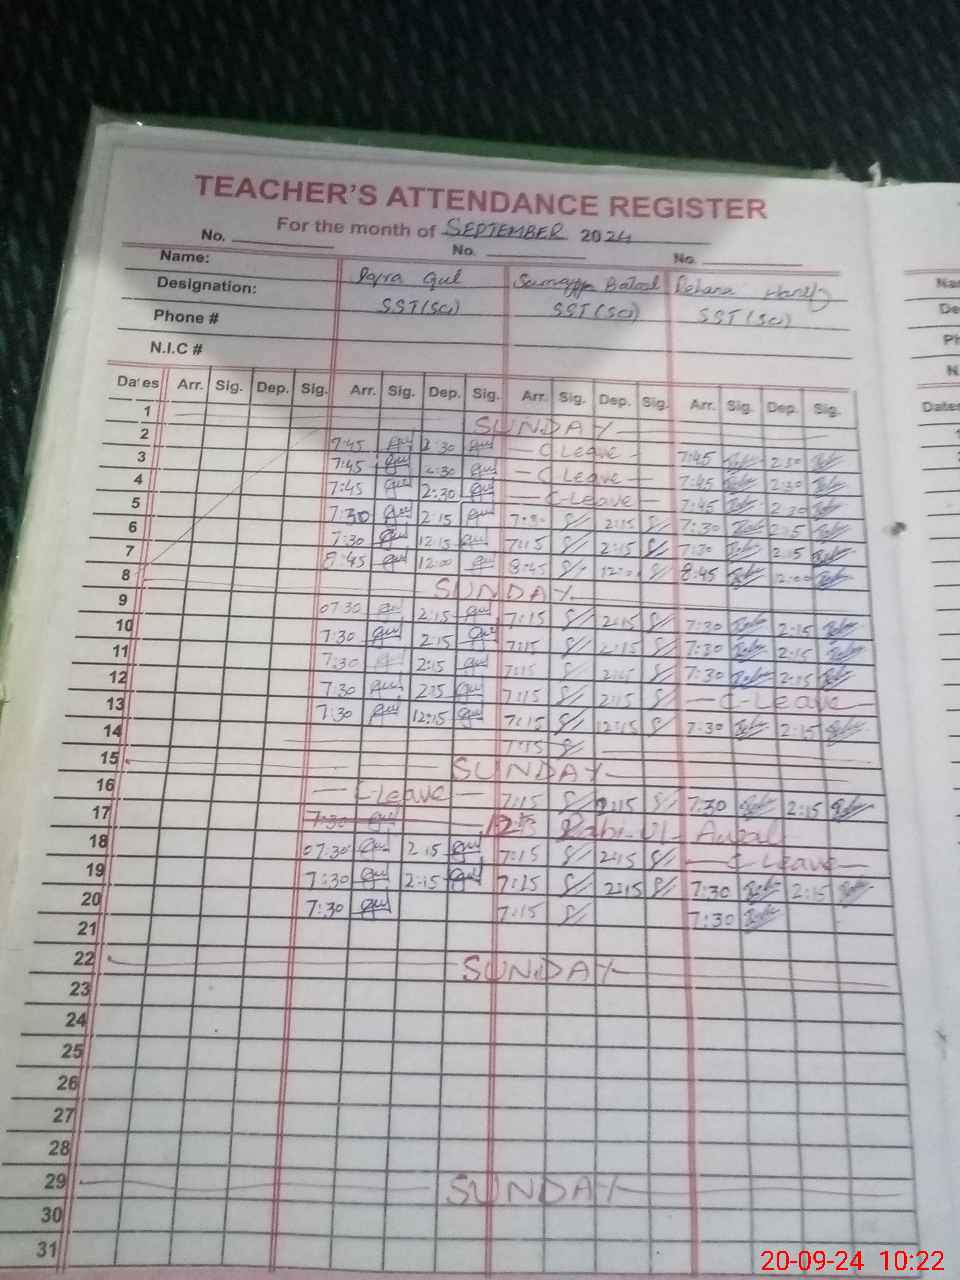 TEACHER'S ATTENDANCE REGISTER
For the month of SEPTEMBER 2024
No. No. No.
Name: Iqra Gul Sumayya Batool Rehana Hanif
Designation: SST (Sci) SST (Sci) SST (Sci)
Phone #
N.I.C #
Dates Arr. Sig. Dep. Sig. Arr. Sig. Dep. Sig. Arr. Sig. Dep. Sig. Arr. Sig. Dep. Sig.
1 SUNDAY
2 7:45 Gul 2:30 Gul C Leave 7:45 2:30
3 7:45 Gul 2:30 Gul C Leave 7:45 2:30
4 7:45 Gul 2:30 Gul C-Leave 7:45 2:30
5 7:30 Gul 2:15 Gul 2:15 7:30 2:15
6 7:30 Gul 12:15 Gul 7:15 2:15 7:30 2:15
7 8:45 Gul 12:00 Gul 8:45 8:45 12:00
8 SUNDAY
9 07:30 Gul 2:15 Gul 7:15 2:15 7:30 2:15
10 7:30 Gul 2:15 Gul 7:15 2:15 7:30 2:15
11 7:30 2:15 Gul 7:15 2:15 7:30 2:15
12 7:30 Gul 2:15 Gul 7:15 2:15 C-Leave
13 7:30 Gul 12:15 Gul 7:15 12:15 7:30 2:15
14 7:15
15 SUNDAY
16 C-Leave 7:15 2:15 7:30 2:15
17 7:30 Gul 12 Rabi-Ul-Awal
18 07:30 Gul 2:15 Gul 7:15 2:15 C-Leave
19 7:30 Gul 2:15 Gul 7:15 2:15 7:30 2:15
20 7:30 Gul 7:15 7:30
21
22 SUNDAY
23
24
25
26
27
28
29 SUNDAY
30
31
Dates
20-09-24 10:22